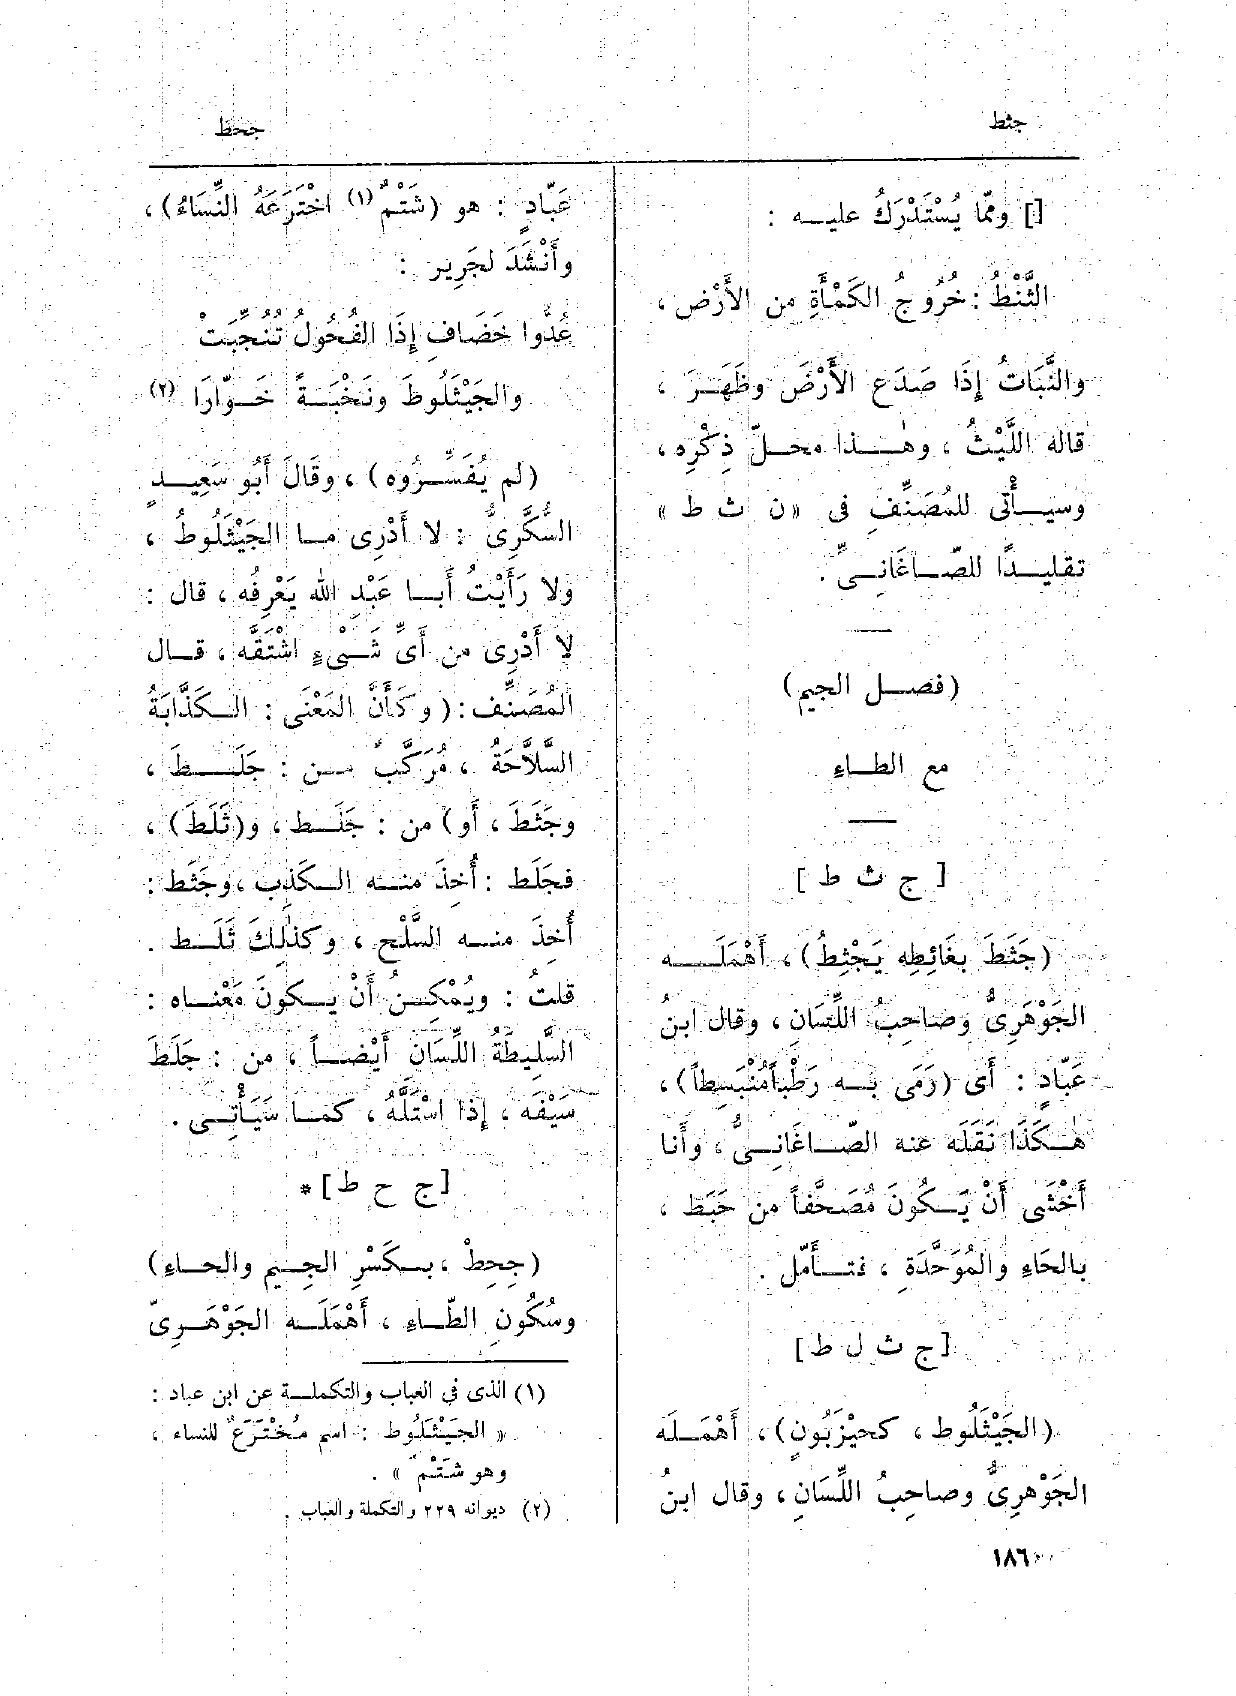 جثط
جحط
[] ومّما يُسْتَدْرَكُ عليـــه :
الثَّنْطُ : خُرُوجُ الكَمْأَةِ من الأَرْض ،
والنَّبَاتُ إِذَا صَدَع الأَرْضَ وظَهَــرَ ،
قاله اللَّيْثُ ، وهٰــذا محــلّ ذِكْرِه ،
وسيــأْتى للمُصَنِّف فى «ن ث ط »
تقليــدًا للصّــاغَانِــىِّ .
(فصــل الجيم)
مع الطــاء
[ ج ث ط ]
(جَثَطَ بغَائِطِه يَجْثِطُ) ، أَهْمَلَــه
الجَوْهَرِىُّ وصَاحِبُ اللِّسَانِ ، وقال ابنُ
عَبّادٍ : أَى (رَمَى بــه رَطْباًمُنْبَسِطاً) ،
هٰــكَذَا نَقَلَه عنه الصّــاغَانِــىُّ ، وأَنا
أَخْشَى أَنْ يَــكُونَ مُصَحَّفاً من خَبَط ،
بالخَاءِ والمُوَحَّدَةِ ، فتــأَمّل .
[ج ث ل ط]
(الجَيْثَلُوط ، كحيْزَبُونٍ) ، أَهْمَــلَه
الجَوْهرِىُّ وصاحِبُ اللِّسَانِ ، وقال ابنُ
عَبّادٍ : هو (شَتْمٌ (١) اخْتَرَعَهُ النِّسَاءُ) ،
وأَنْشَدَ لجَرِير :
عُدُّوا خَضَافِ إِذَا الفُحُولُ تُنُجِّبَتْ
والجَيْثَلُوطَ ونَخْبَــةً خَــوَّارَا (٢)
(لم يُفَسِّرُوه) ، وقَالَ أَبُو سَعِيــدٍ
السُّكَّرِىُّ : لا أَدْرِى مــا الجَيْثَلُوطُ ،
ولا رَأَيْتُ أَبــا عَبْدِ الله يَعْرِفُه ، قال :
لا أَدْرِى من أَىِّ شَــىْءٍ اشْتَقَّه ، قــال
المُصَنِّف : ( وكَأَنَّ المَعْنَى : الــكَذَّابَةُ
السَّلاَّحَةُ ، مُرَكَّبٌ مــن : جَلَــطَ ،
وجَثَطَ ، أَو) من : جَلَــط ، و(ثَلَطَ) ،
فجَلَط : أُخِذَ منــه الــكَذِب ، وجَثَط :
أُخِذَ منــه السَّلْح ، وكذٰلِكَ ثَلَــط .
قلتُ : ويُمْكِــنُ أَنْ يــكونَ مَعْنــاه :
السَّلِيطَةُ اللِّسَانِ أَيْضــاً ، من : جَلَطَ
سَيْفَه ، إِذا اسْتَلَّهُ ، كمــا سَيَأْتِــى .
[ج ح ط] *
(جِحِطْ ، بــكَسْرِ الجِيــم والحــاءِ)
وسُكُونِ الطّــاءِ ، أَهْمَلَــه الجَوْهَــرِىّ
(١) الذى فى العباب والتكملــة عن ابن عباد :
« الجَيْثَلُوط : اسم مُخْتَرَعٌ للنساء ،
وهو شَتْم » .
(٢) ديوانه ٢٢٩ والتكملة والعباب .
١٨٦